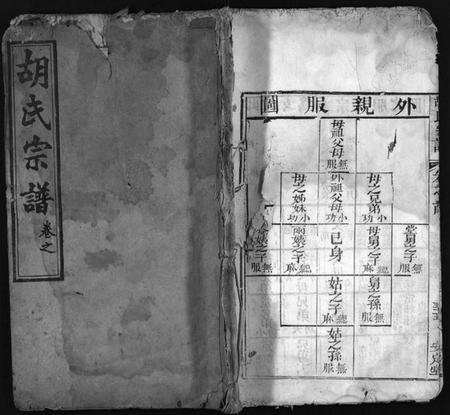 胡氏宗譜 卷之
外親服圖
母祖父母 無服
母之兄弟 小功
外祖父母 小功
母之姊妹 小功
堂舅之子 無服
母舅之子 緦麻
己身
兩姨之子 緦麻
無服
舅之孫 無服
姑之子 緦麻
姑之孫 無服